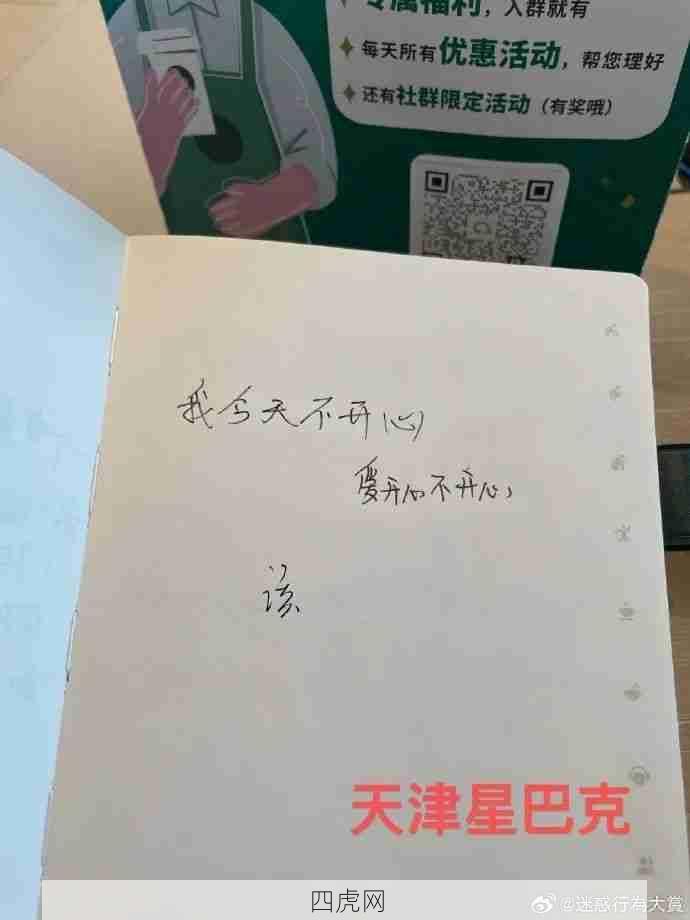 专属福利，入群就有
每天所有优惠活动，帮您理好
还有社群限定活动（有奖哦）
我今天不开心
爱开心不开心，
该
天津星巴克
四虎网
@迷惑行为大赏